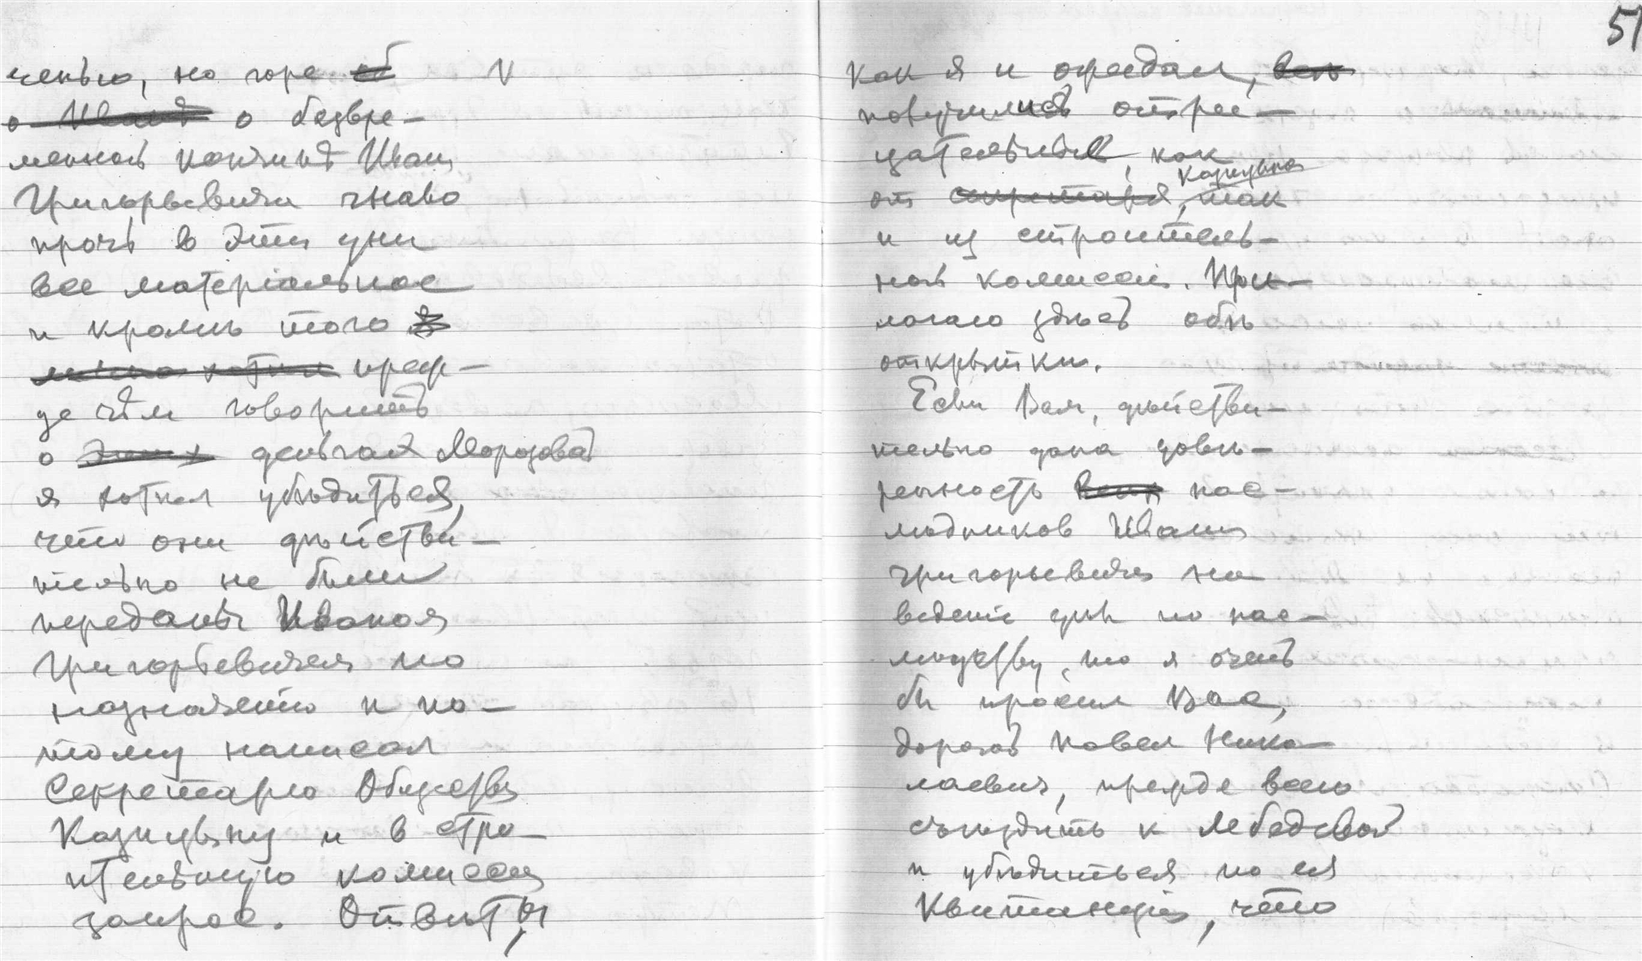 ченью, но горе
о безвре-
менной кончинѣ Ивана
Григорьевича гнало
прочь в эти дни
все матеріальное
и кромѣ того
преж-
де чѣм говорить
о деньгах Морозовой
я хотѣл убѣдиться,
что они дѣйстви-
тельно не были
переданы Иваном
Григорьевичем по
назначенію и по-
тому написал
Секретарю Общества
Казицыну и в стро-
ительную комиссію
запрос. Отвѣты,
51
как я и ожидал,
получились отри-
цательные, как
от Казицына, так
и из строитель-
ной комиссіи. При-
лагаю здѣсь обѣ
открытки.
Если Вам, дѣйстви-
тельно дана довѣ-
ренность нас-
лѣдников Ивана
Григорьевича на
веденіе дѣл по нас-
лѣдству, то я очень
бы просил Вас,
дорогой Павел Нико-
лаевич, прежде всего
съѣздить к Лебедевой
и убѣдиться по ея
квитанціи, что